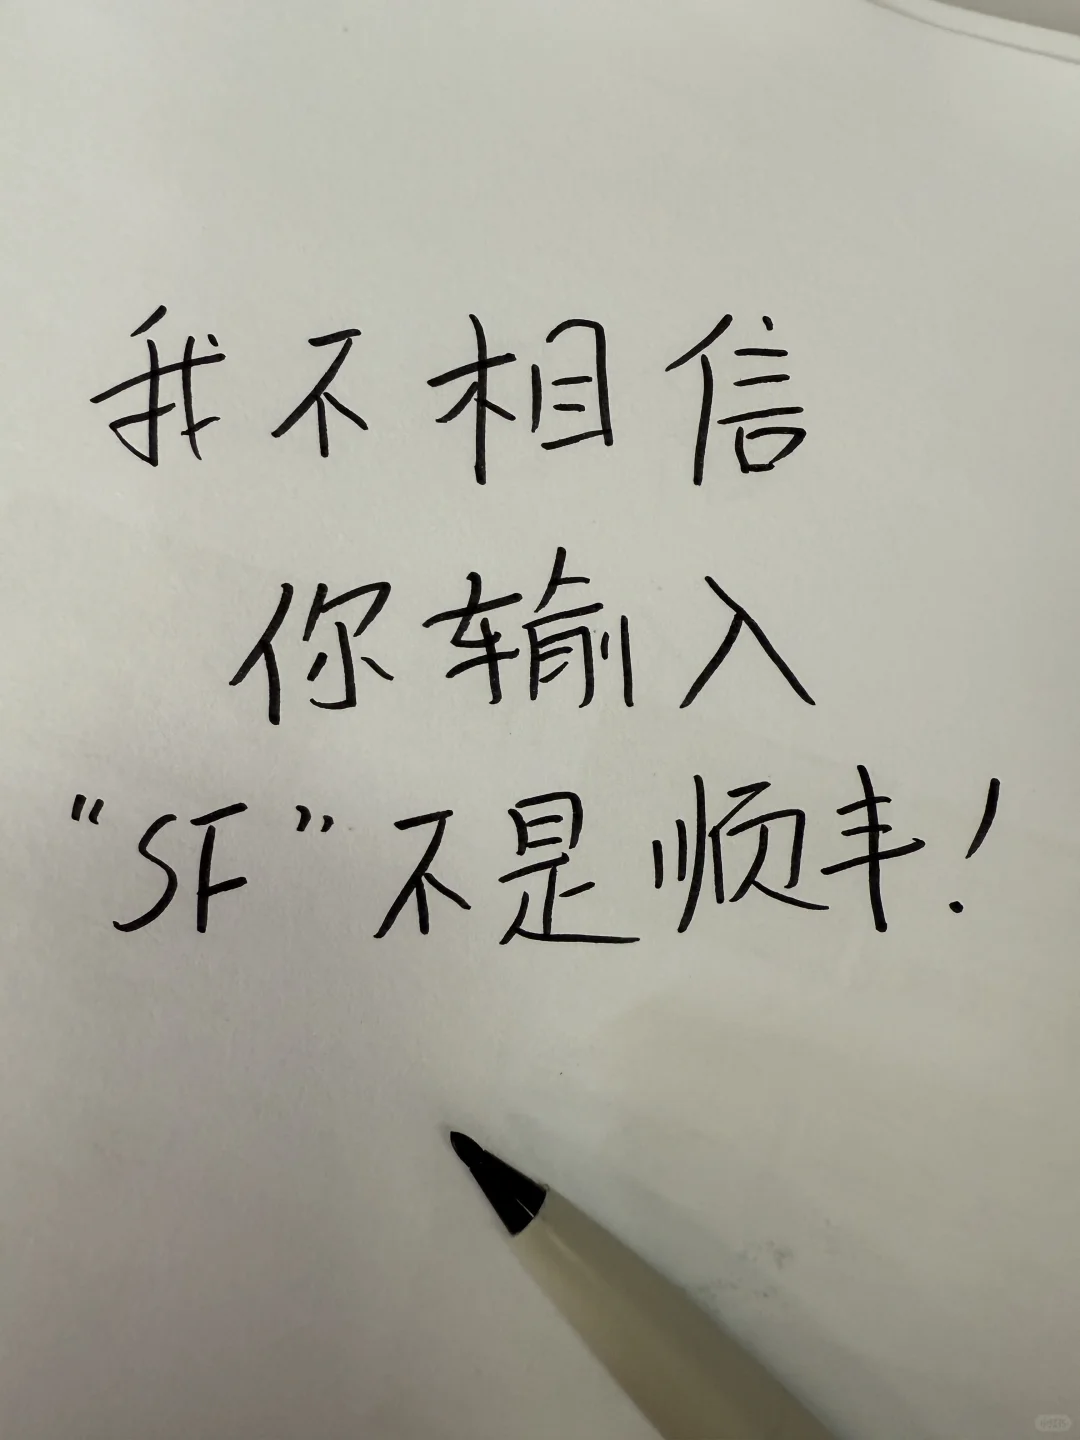 我不相信
你输入
“SF”不是顺丰！